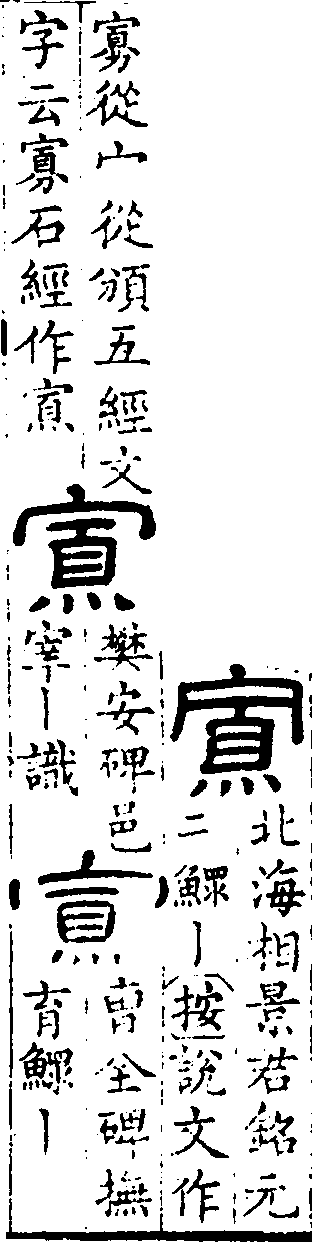 寡
北海相景君銘元
二鰥丨按說文作
寡從宀從頒五經文
字云寡石經作寡
寡
樊安碑邑
宰丨識
寡
曹全碑撫
育鰥丨